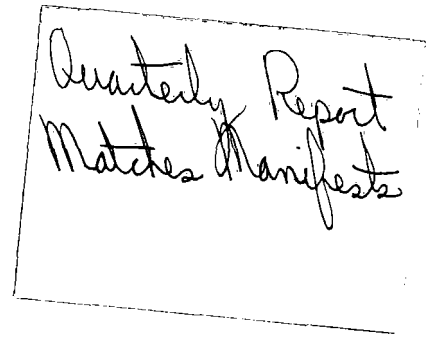 Quarterly Report
Matches Manifests